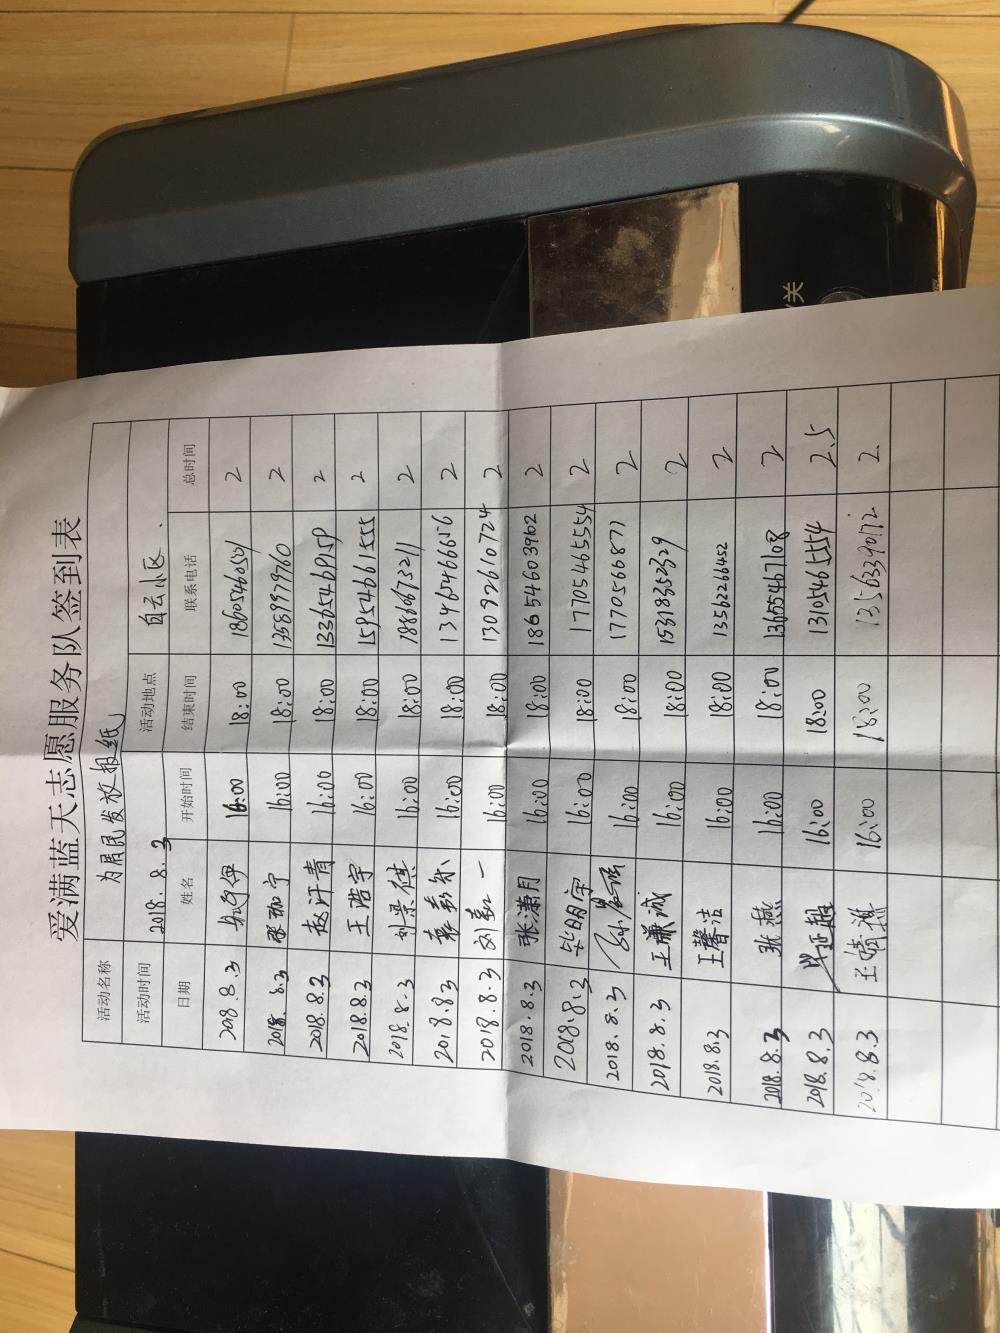 爱满蓝天志愿服务队签到表
活动名称 为居民发放报纸
活动时间 2018.8.3 活动地点 白云小区.
日期 姓名 开始时间 结束时间 联系电话 总时间
2018.8.3 16:00 18:00 2
2018.8.3 张珈宁 16:00 18:00 13589979760 2
2018.8.3 赵汗青 16:00 18:00 13365469159 2
2018.8.3 王浩宇 16:00 18:00 15954661555 2
2018.8.3 刘景祺 16:00 18:00 2
2018.8.3 16:00 18:00 13465466656 2
2018.8.3 刘嘉一 16:00 18:00 13092610724 2
2018.8.3 张潇月 16:00 18:00 18654603962 2
2018.8.3 毕明宇 16:00 18:00 17705465554 2
2018.8.3 16:00 18:00 17705666877 2
2018.8.3 王谦诚 16:00 18:00 15318352329 2
2018.8.3 王馨洁 16:00 18:00 13562266452 2
2018.8.3 张燕 16:00 18:00 13655467108 2
2018.8.3 毕延超 16:00 18:00 13105465554 2.5
2018.8.3 16:00 18:00 13563390172 2.
关